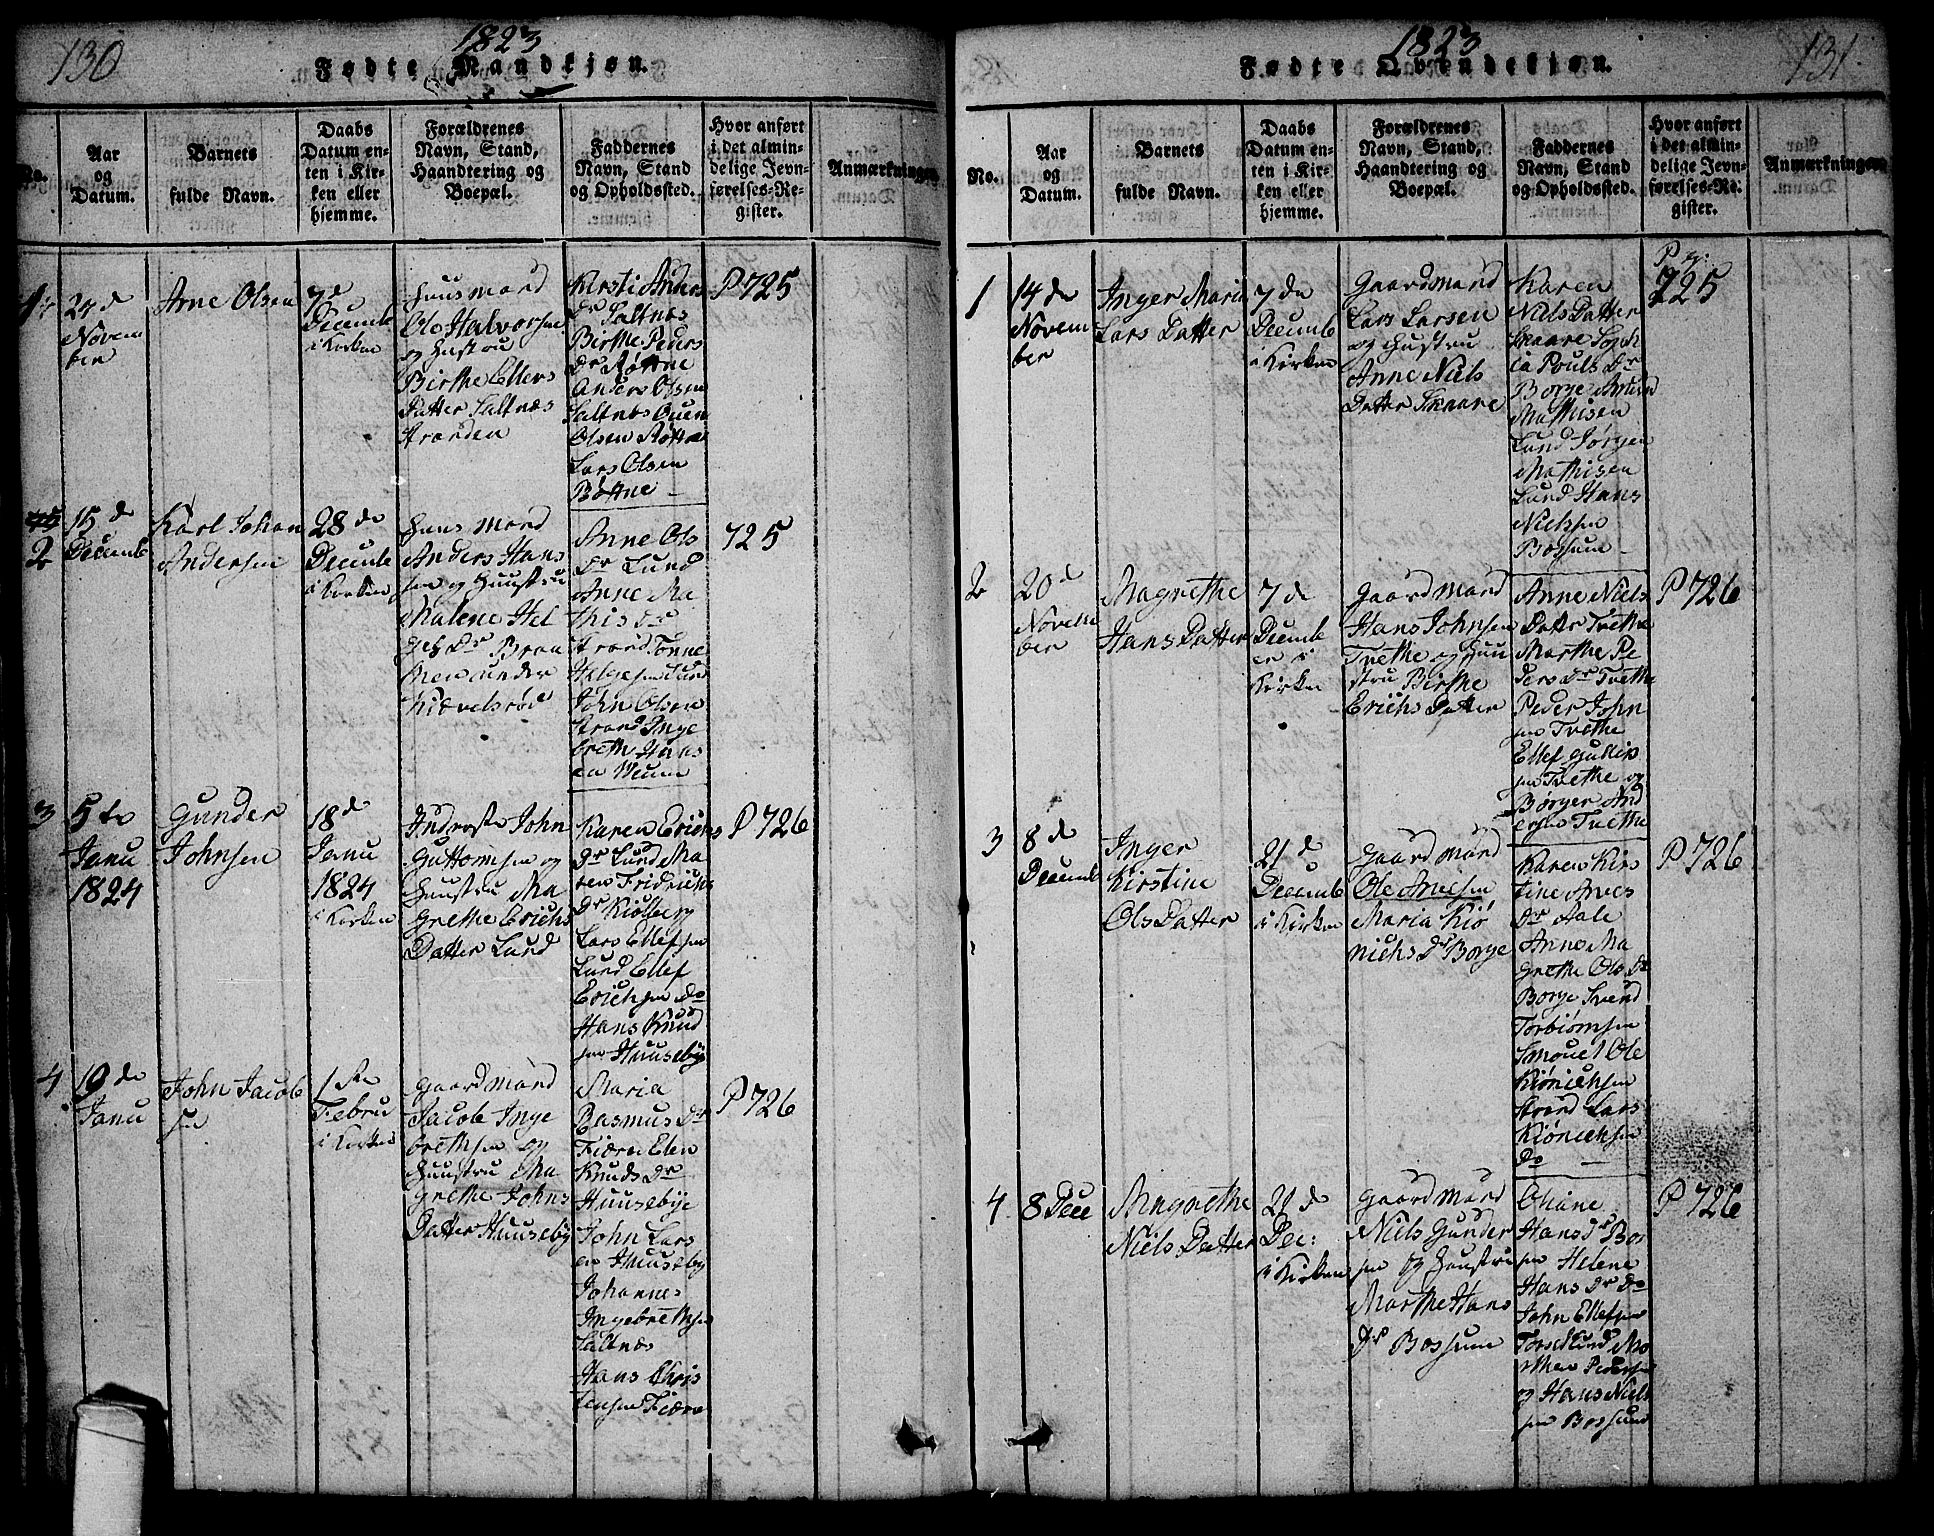 130
1823
Fødte Mandkjøn.
No.
Aar
og
Datum.
Barnets
fulde Navn.
Daabs
Datum en-
ten i Kir-
ken eller
hjemme.
Forældrenes
Navn, Stand,
Haandtering og
Boepæl.
Faddernes
Navn, Stand
og Opholdssted.
Hvor anført
i det almin-
delige Jevn-
førelses-Re-
gister.
Anmærkninger
1
24 de
Novem
ber
Arne Olsen
7 de
Decemb
i Kirken
Huusmand
Ole Halvorsen
og Hustru
Birthe Ellers
Datter Saltnæs
stranden
Kirsti Anders
Dr Saltnæs
Birthe Peders
Dr Røttne
Anders Olsen
Saltnæs
Olsen Røttne
Lars Olsen
Røttne
P 725
2
15 de
Decemb
Karl Johan
Andersen
28 de
Decemb
i Kirken
Huusmand
Anders Han
sen og Huustru
Malene Hel
ges Dr Bra
ken under
Anne Ols
Dr Lund
Anne Ma
this Dr
Strand Tønne
Helgesen Lund
John Olsen
Strand Inge
breth Hans
en Veum
725
3
5 te
Janu
1824
Gunder
Johnsen
18 de
Janu
1824
i Kirken
Inderste John
Guttormsen og
Huustru Ma
Grethe Erichs
Datter Lund
Karen Erichs
Dr Lund Ma
ren Fridrichs
Dr Kiølberg
Lars Ellefsen
Lund Ellef
Erichsen do
Hans Knud
sen Huuseby
P 726
4
19 de
Janu
John Jacob
sen
1 ste
Febru
i Kirken
Gaardmand
Jacob Inge
brethsen og
Huustru Ma
Grethe Johns
Datter Huuseby
Maria
Rasmus Dr
Fiære Elen
Knuds Dr
Huusebye
John Lars
en Huuseby
Johannes
Ingebrethsen
Saltnæs
Hans Chris
tensen Fiære
P 726
131
1823
Fødte Qvindekjøn.
No.
Aar
og
Datum.
Barnets
fulde Navn.
Daabs
Datum en-
ten i Kir-
ken eller
hjemme.
Forældrenes
Navn, Stand,
Haandtering og
Boepæl.
Faddernes
Navn, Stand
og Opholdssted.
Hvor anført
i det almin-
delige Jevn-
førelses-Re-
gister.
Anmærkninger
1
14 de
Novem
ber
Inger Maria
Lars Datter
7 de
Decemb
i Kirken
Gaardmand
Lars Larsen
og Hustru
Anne Niels
Datter Skaare
Karen
Niels Datter
Skaare Soph
ia Pouls Dr
Borge Amund
Mathisen
Lund Jørgen
Mathisen
Lund Hans
Nielsen
Bossum
725
2
20 de
Novem
ber
Magrethe
Hans Datter
7 de
Decemb
er i
Kirken
Gaardmand
Hans Johnsen
Tvethe og Huu
stru Birthe
Erichs Datter
Anne Niels
Datter Tvethe
Marthe Pe
ders Dr Tvethe
Peder John
sen Tvethe
Ellef Gullik
sen Tvethe og
Børger And
ersen Tvethe
P 726
3
8 de
Decemb
Inger
Kirstine
Ols Datter
21 de
Decemb
i Kirken
Gaardmand
Ole Arvesen
Maria Kiø
nichs Dr Borge
Karen Kirs
tine Arves
Dr Aale
Anne Ma
grethe Ols Dr
Borge Svend
Torbiørnsen
Ole
Kiønichsen
Strand Lars
Kiønichsen
do
P 726
4
8 Dece
Magrethe
Niels Datter
21 de
Dec:
i Kirken
Gaardmand
Niels Gunder
sen og Huustru
Marthe Hans
Dr Bossum
Oliane
Hans Dr Bos
sm Helene
Hans Dr do
John Ellefsen
Torsedlund Mo
rthen Pedersen
og Hans Niels
sen Bossum
P 726